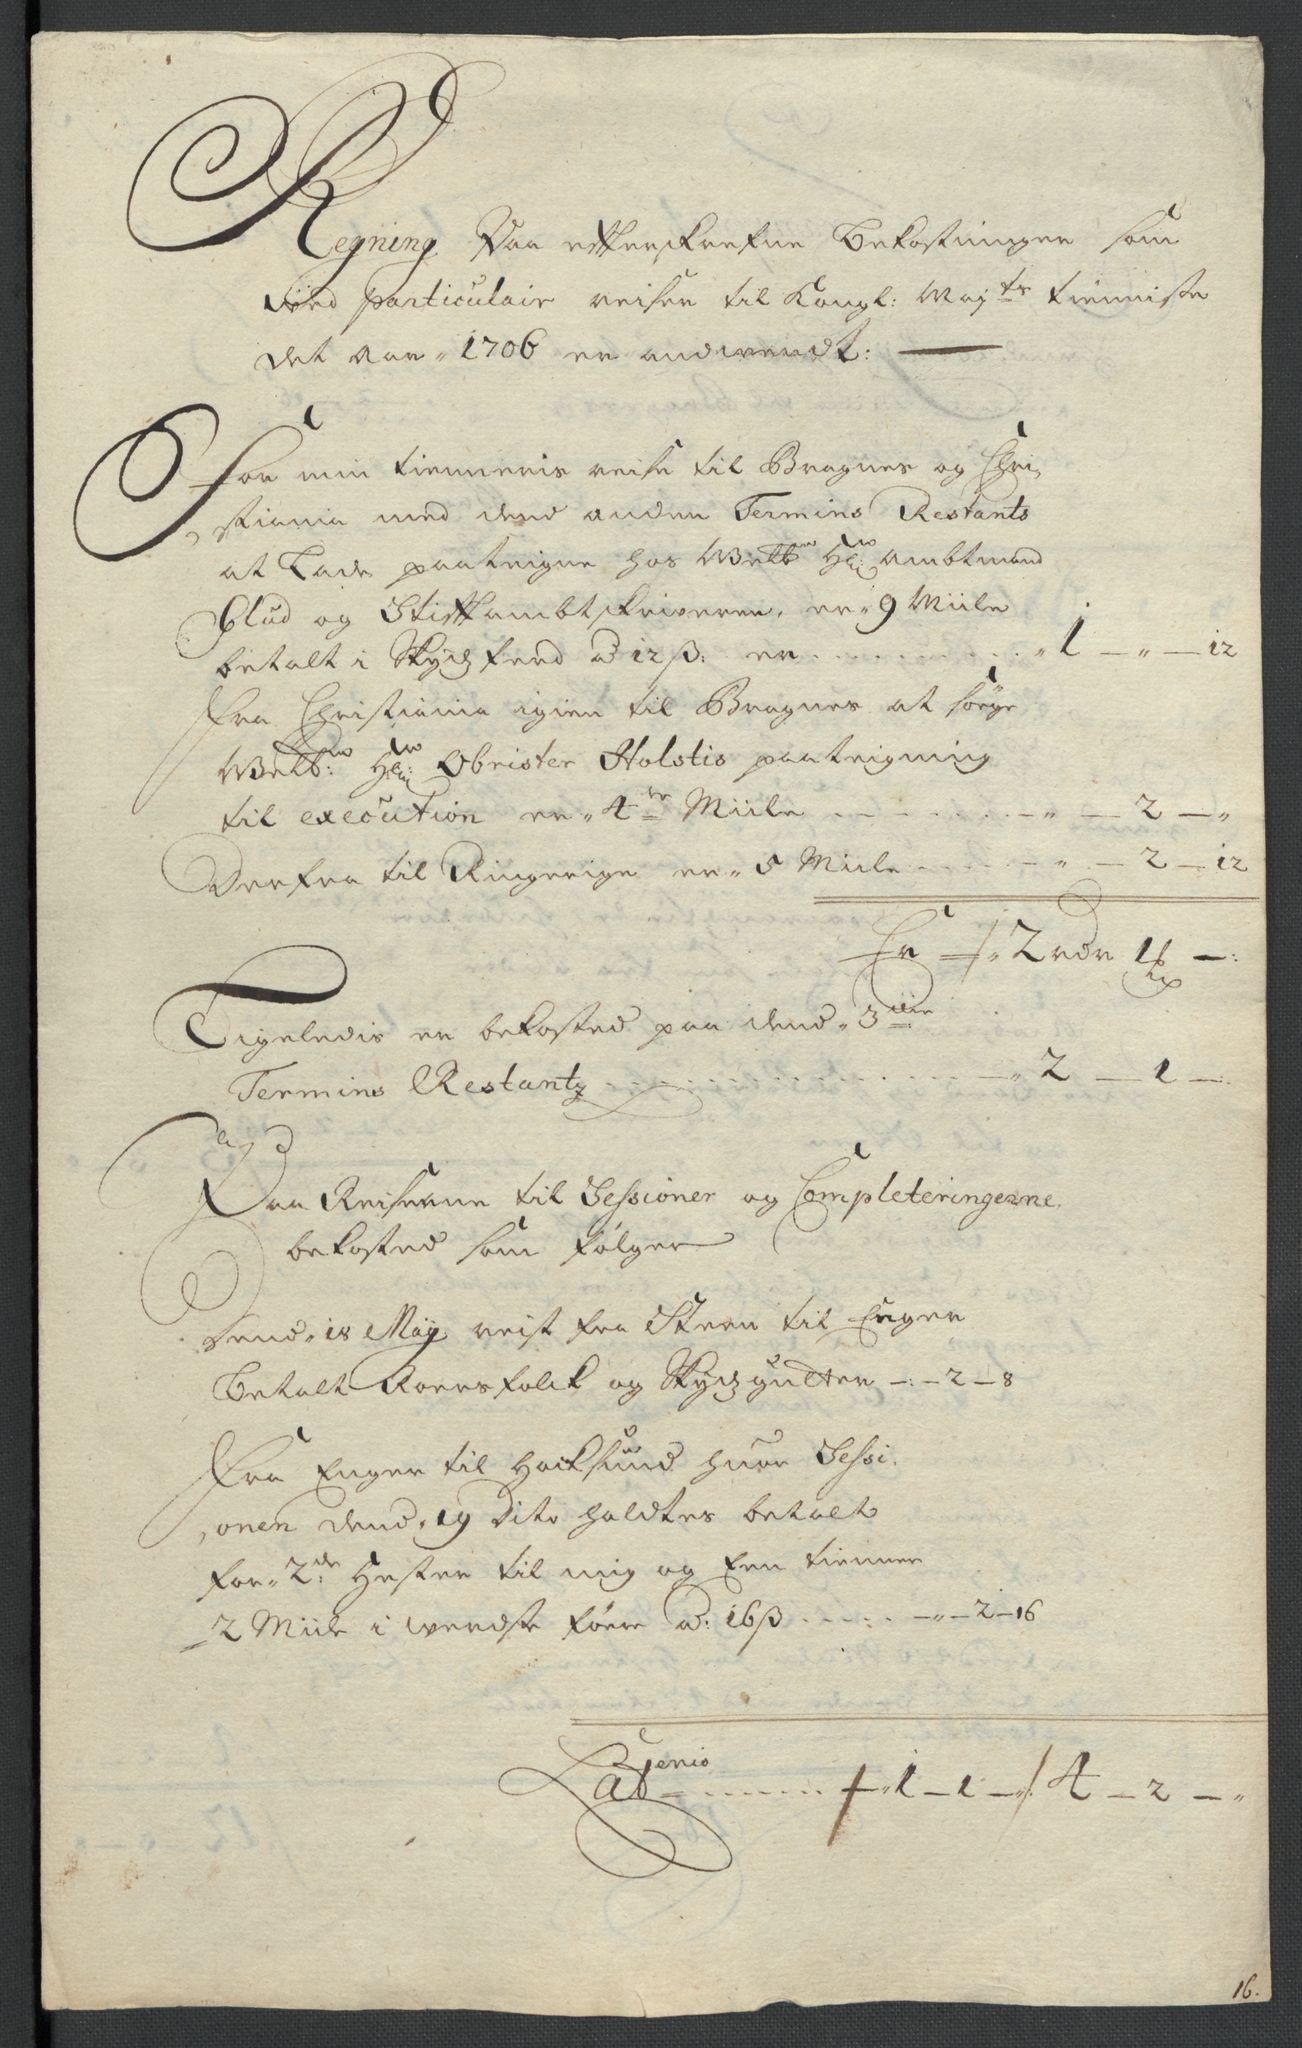 Regning Paa effterskrefne Bekostninger som
Ved particulair reiser til Kongl: Maj.ts tienniste
det Aar. 1706 er andwendt:
For min tienneris reise til Bragnes og Chri-
stiania med dend anden Termins Restants
at Lade paateigne hos Welb: Hr: Ambtmand
Blud og Stifftambtskriveren, er 9 Miile
betalt i Skydsferd a 12 ß: er ........ " 1 — " — 12
Fra Christiania igien til Bragnes at søge
Welb: Hr: Obrister Holstis paateigning
til execution er 4re Miile ........ " — 2 — "
Derfra til Ringerige er 5 Miile ........ " — 2 — 12
Er — 2 rdr 1 —:
Ligeledis er bekosted paa dend 3die
Termins Restantz ........ 2 — 1 —
Paa Reiserne til Sessioner og Completeringerne
bekosted som følger
Dend 18 Maij reist fra Steen til Enger
Betalt Roersfolck og Skydsgutter — : — 2 — 8
Fra Enger til Hocksund huor Sessi-
onen dend 19 Dito holdtes betalt
for 2de Hester til mig og Een tienner
2 Miile i werste føere a: 16 ß ..... — " — 2 — 16
Lat erio ........ 1 — 1 — " 4 — 2 — "
16.